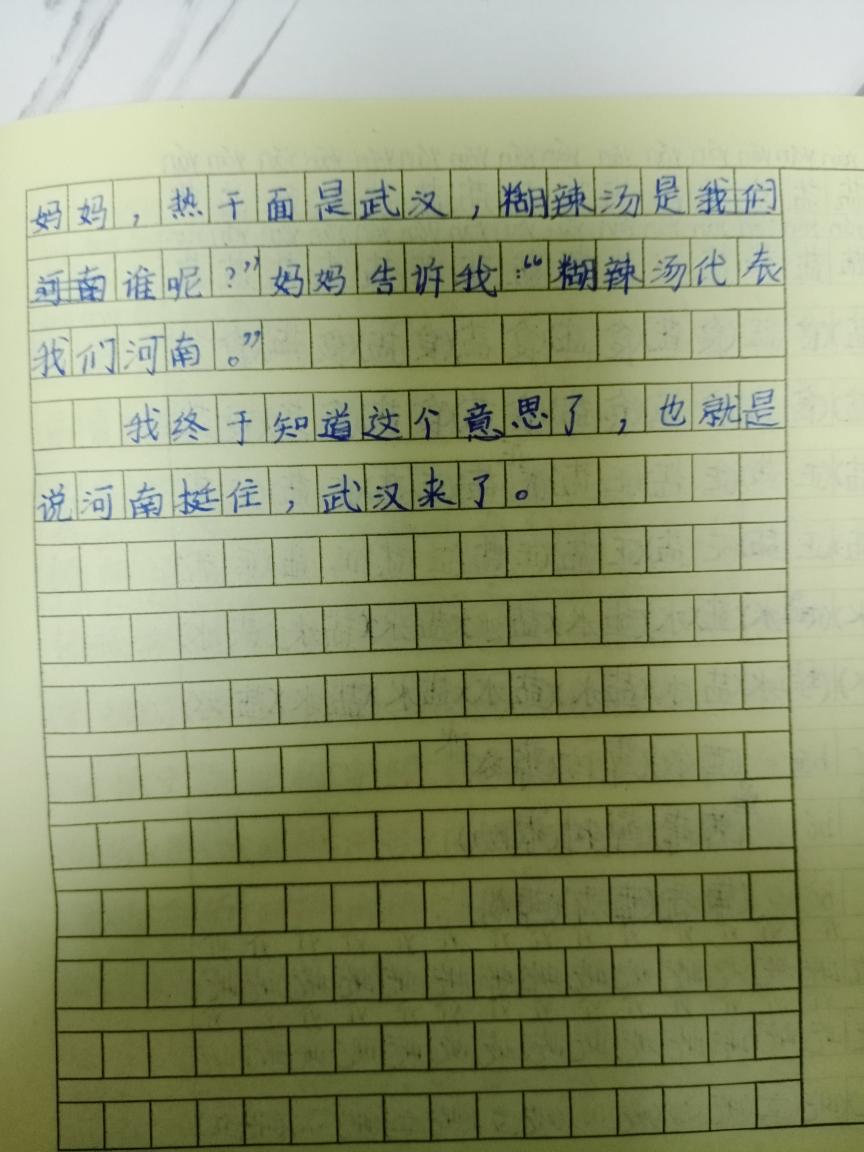 妈妈，热干面是武汉，糊辣汤是我们
河南谁呢？”妈妈告诉我：“糊辣汤代表
我们河南。”
我终于知道这个意思了，也就是
说河南挺住，武汉来了。